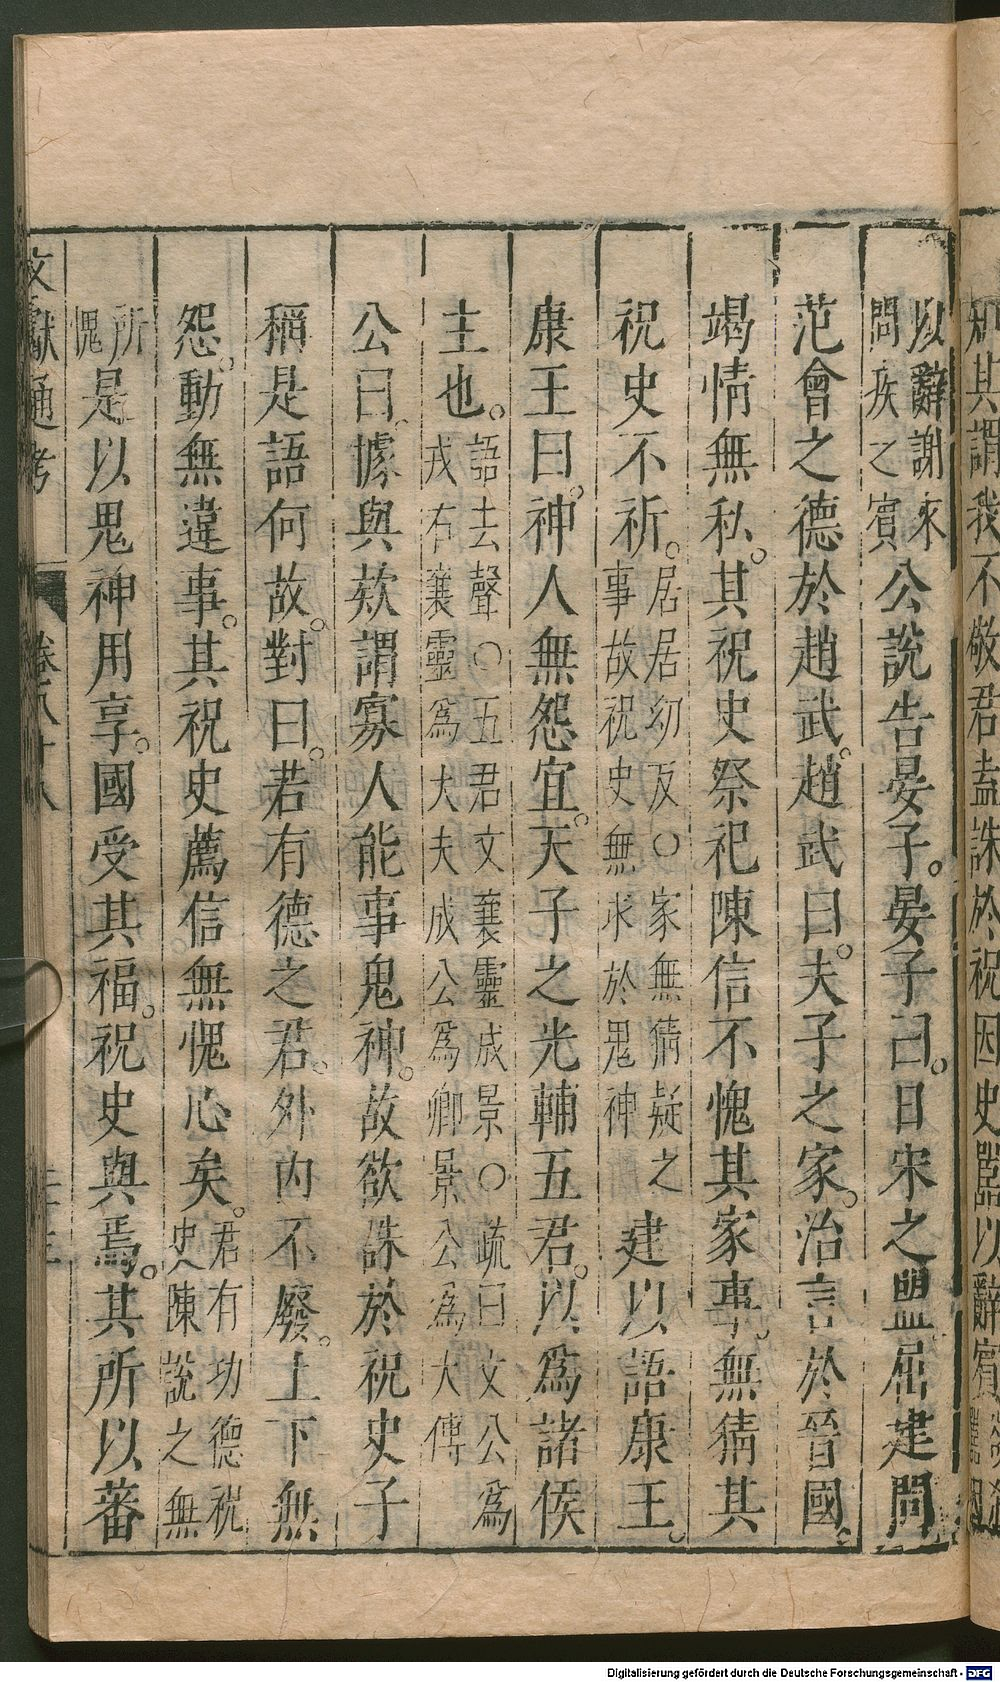 知其謂我不敬君盍誅於祝固史嚚以辭賓
以辭謝來
問疾之賓
公說告晏子。晏子曰。日宋之盟屈建問
范會之德於趙武。趙武曰。夫子之家。治言於晉國
竭情無私。其祝史祭祀陳信不愧其家事。無猜其
祝史不祈。
居居幼反〇家無猜疑之
事故祝史無求於鬼神
建以語康王。
康王曰。神人無怨宜。夫子之光輔五君。以為諸侯
主也。
語去聲〇五君文襄靈成景〇疏曰文公為
戎右襄靈為大夫成公為卿景公為大傅
公曰據與欵謂寡人能事鬼神。故欲誅於祝史子
稱是語何故。對曰。若有德之君。外內不廢。上下無
怨。動無違事。其祝史薦信無愧心矣。
君有功德祝
史陳說之無
所
愧
是以鬼神用享。國受其福。祝史與焉。其所以蕃
文獻通考
卷八十八
Digitalisierung gefördert durch die Deutsche Forschungsgemeinschaft - DFG